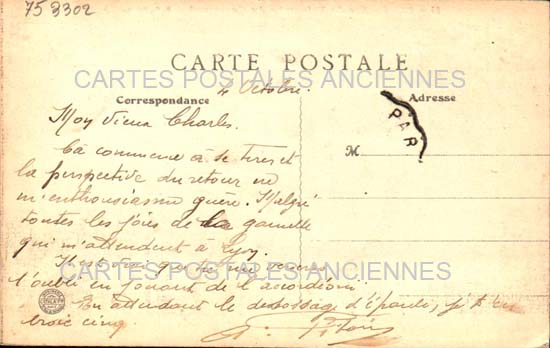 75 3302
CARTE POSTALE
CARTES POSTALES ANCIENNES
4 Octobre.
Correspondance
Adresse
PAR
M
Mon vieux Charles.
Ça commence à se tirer et
la perspective du retour ne
m'enthousiasme guère. Malgré
toutes les joies de la gamelle
qui m'attendent à Lyon.
CARTES POSTALES ANCIENNES
l'oubli en jouant de l'accordéon.
En attendant le de d'épaule, je t'en
broie cinq